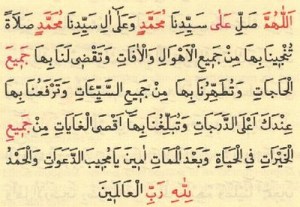 اَللّٰهُمَّ صَلِّ عَلٰى سَيِّدِنَا مُحَمَّدٍ وَعَلٰٓى اٰلِ سَيِّدِنَا مُحَمَّدٍ صَلَاةً
تُنْجِينَا بِهَا مِنْ جَمِيعِ الْاَهْوَالِ وَالْاٰفَاتِ وَتَقْضِى لَنَا بِهَا جَمِيعَ
الْحَاجَاتِ وَتُطَهِّرُنَا بِهَا مِنْ جَمِيعِ السَّيِّئَاتِ وَتَرْفَعُنَا بِهَا
عِنْدَكَ اَعْلَى الدَّرَجَاتِ وَتُبَلِّغُنَا بِهَٓا اَقْصَى الْغَايَاتِ مِنْ جَمِيعِ
الْخَيْرَاتِ فِى الْحَيَاةِ وَبَعْدَ الْمَمَاتِ اٰمِينَ يَا مُجِيبَ الدَّعَوَاتِ وَالْحَمْدُ
لِلّٰهِ رَبِّ الْعَالَمِينَ